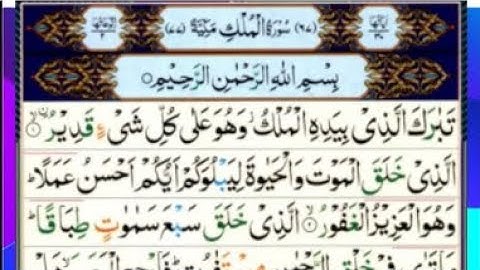 (٦٧) سُوْرَةُ الْمُلْكِ مَكِّيَّةٌ (٧٧)
بِسْمِ اللّٰهِ الرَّحْمٰنِ الرَّحِيْمِ
تَبٰرَكَ الَّذِىْ بِيَدِهِ الْمُلْكُ وَهُوَ عَلٰى كُلِّ شَىْءٍ قَدِيْرُ ۙ﴿۱﴾
الَّذِىْ خَلَقَ الْمَوْتَ وَالْحَيٰوةَ لِيَبْلُوَكُمْ اَيُّكُمْ اَحْسَنُ عَمَلًا ؕ
وَهُوَ الْعَزِيْزُ الْغَفُوْرُ ۙ﴿۲﴾ الَّذِىْ خَلَقَ سَبْعَ سَمٰوٰتٍ طِبَاقًا ؕ